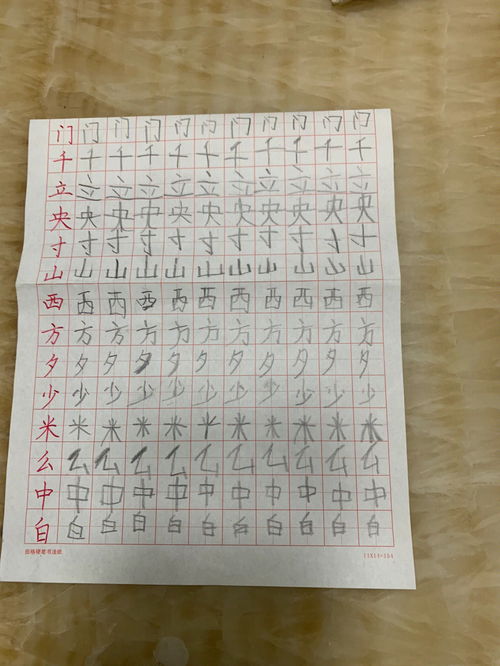 门门门门门门门门门门门
千千千千千千千千千千千
立立立立立立立立立立立
央央央央央央央央央央央
寸寸寸寸寸寸寸寸寸寸寸
山山山山山山山山山山山
西西西西西西西西西西西
方方方方方方方方方方方
夕夕夕夕夕夕夕夕夕夕夕
少少少少少少少少少少少
米米米米米米米米米米米
么么么么么么么么么么么
中中中中中中中中中中中
白白白白白白白白白白白
田格硬笔书法纸 11X14=154